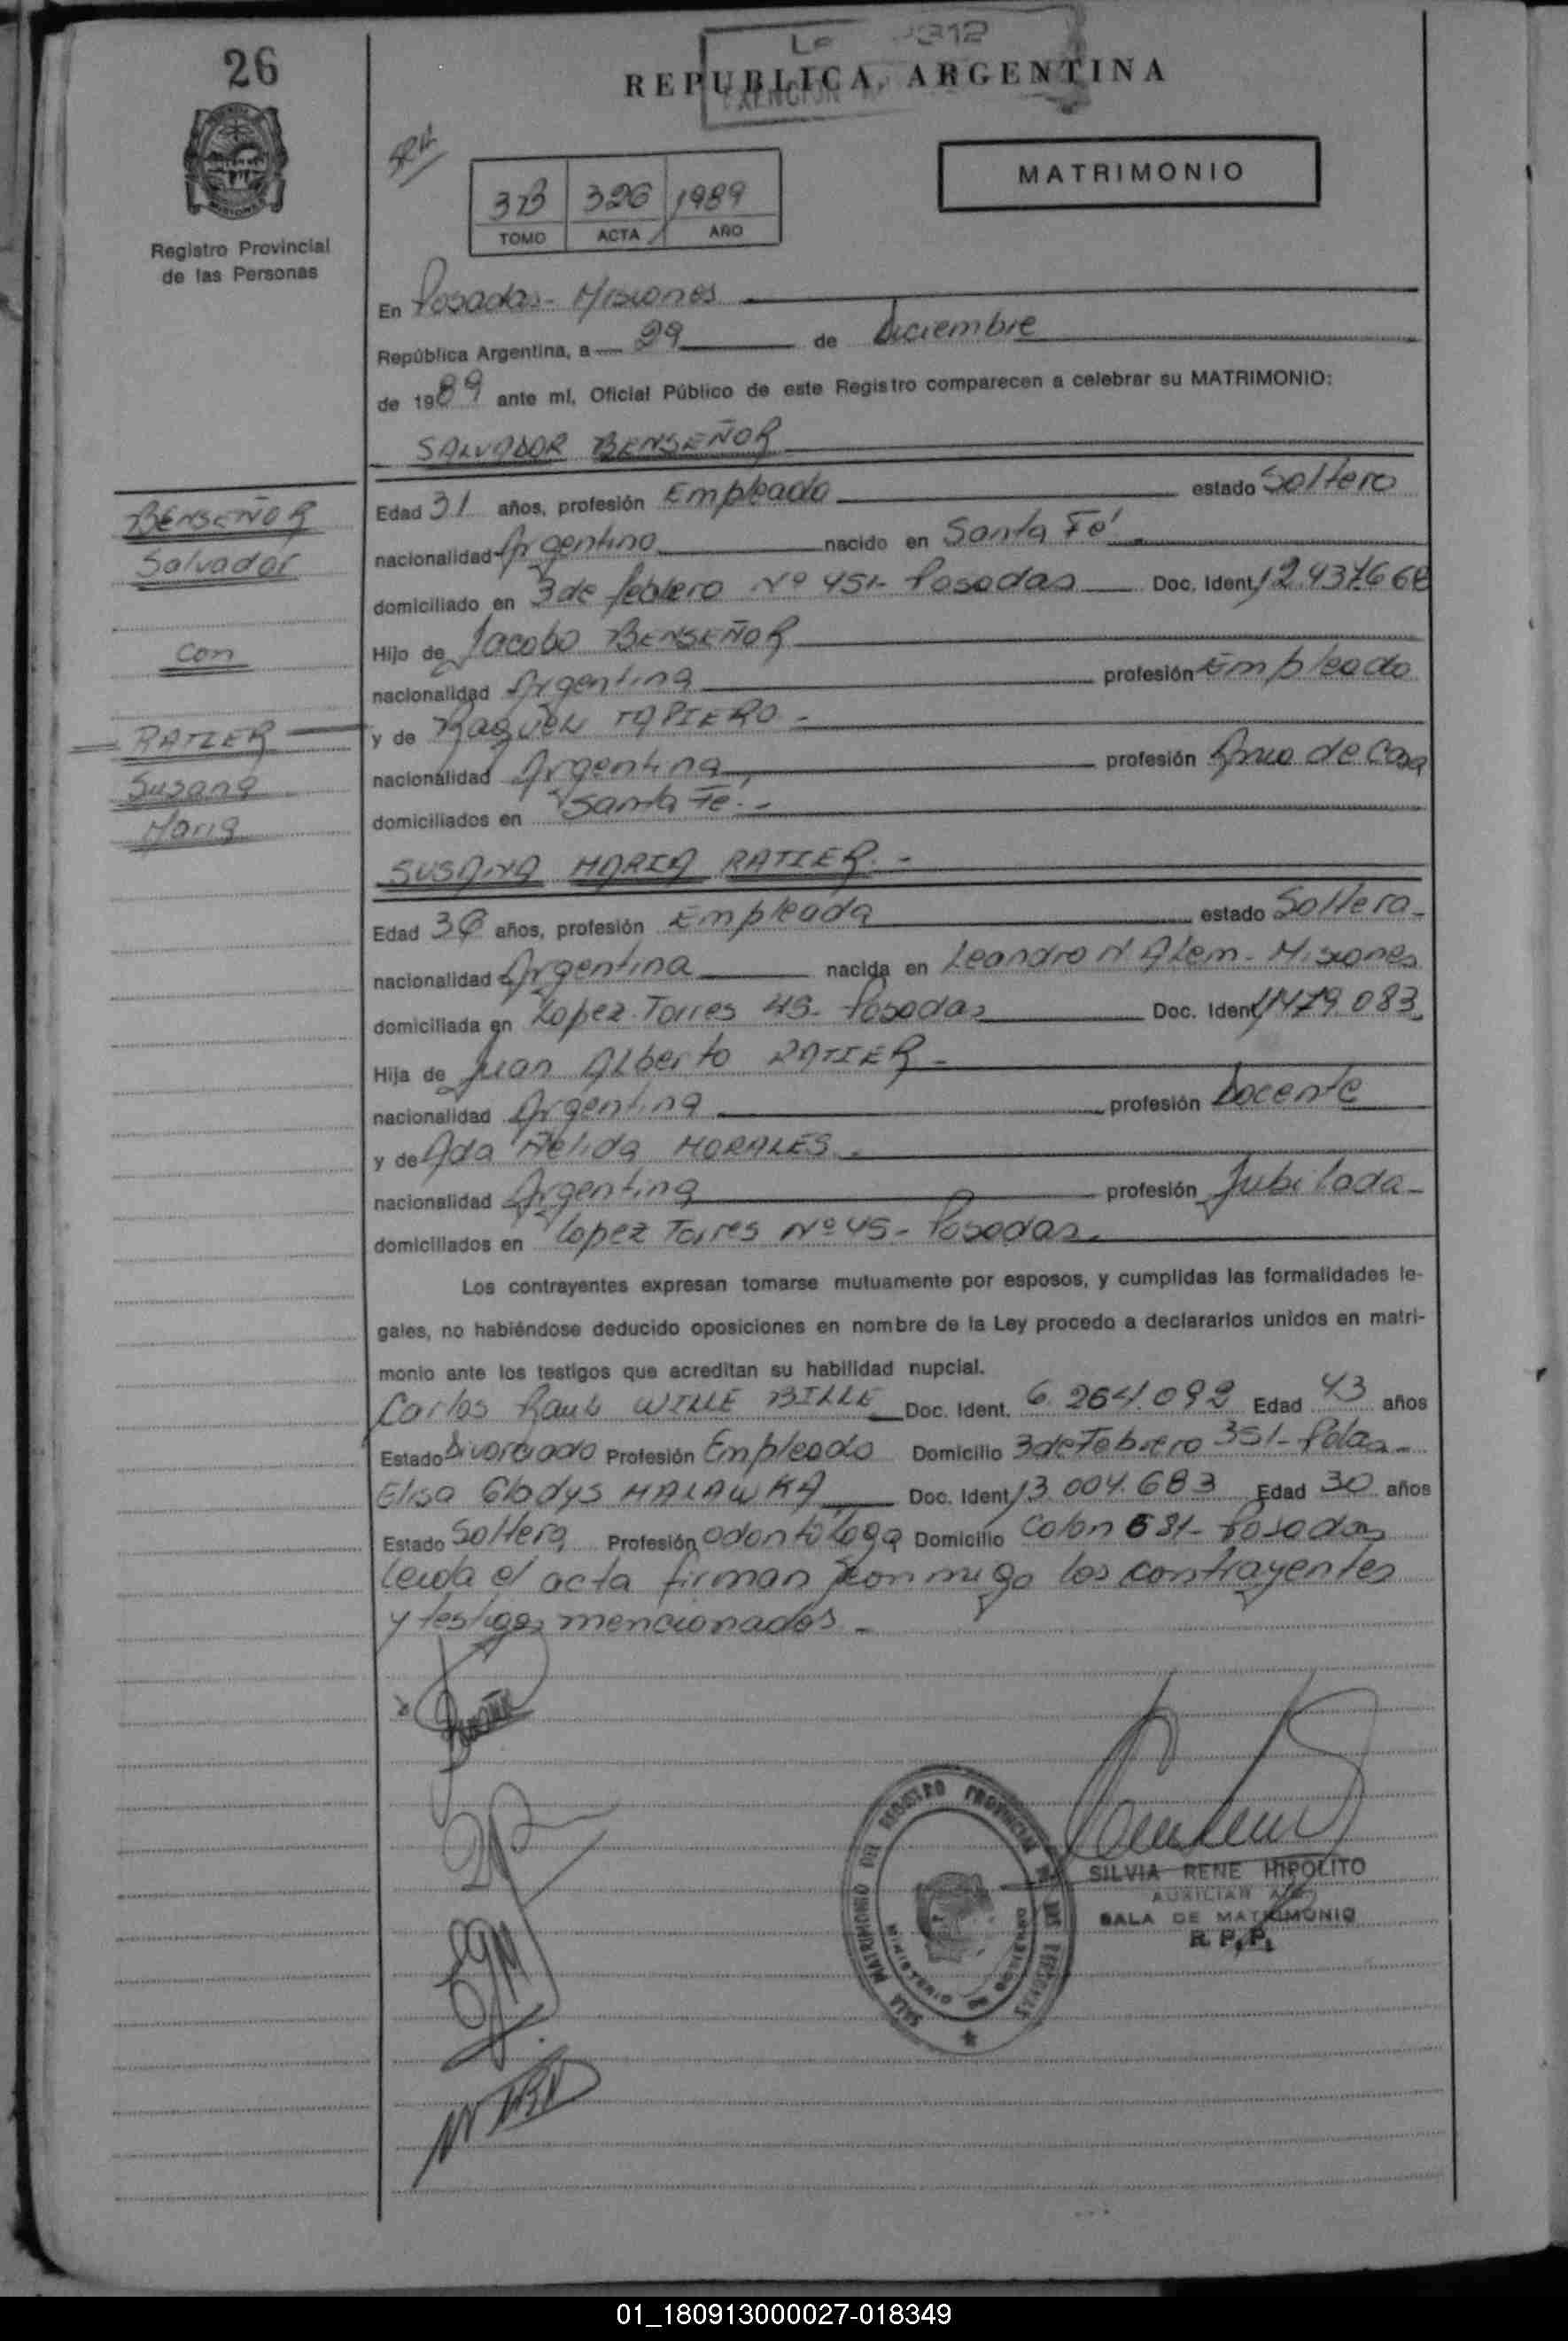 26
REPUBLICA ARGENTINA
MATRIMONIO
3B 326 1989
TOMO ACTA AÑO
Registro Provincial
de las Personas
En Posadas - Misiones
República Argentina, a 29 de Diciembre
de 1989 ante mí, Oficial Público de este Registro comparecen a celebrar su MATRIMONIO:
SALVADOR BENSEÑOR
BENSEÑOR
Salvador
con
RATIER
Susana
Maria
Edad 31 años, profesión Empleado estado Soltero
nacionalidad Argentino nacido en Santa Fé
domiciliado en 3 de febrero Nº 451- Posadas Doc. Ident. 12.437.668
Hijo de Jacobo BENSEÑOR
nacionalidad Argentina profesión Empleado
y de Raquel TAPIERO -
nacionalidad Argentina profesión Ama de Casa
domiciliados en Santa Fé. -
SUSANA MARIA RATIER. -
Edad años, profesión Empleada estado Soltera -
nacionalidad Argentina nacida en Leandro N Alem - Misiones
domiciliada en Lopez Torres 45 - Posadas Doc. Ident. 11.479.083
Hija de Juan Alberto RATIER -
nacionalidad Argentina profesión Docente
y de Ada Nélida MORALES -
nacionalidad Argentina profesión Jubilada -
domiciliados en Lopez Torres Nº 45 - Posadas.
Los contrayentes expresan tomarse mutuamente por esposos, y cumplidas las formalidades le-
gales, no habiéndose deducido oposiciones en nombre de la Ley procedo a declararlos unidos en matri-
monio ante los testigos que acreditan su habilidad nupcial.
Carlos Raul WILLE BILLE Doc. Ident. 6.264.092 Edad 43 años
Estado Divorciado Profesión Empleado Domicilio 3 de Febrero 351- Pdas -
Elisa Gladys MALAWKA Doc. Ident. 13.004.683 Edad 30 años
Estado Soltera Profesión odontóloga Domicilio Colon 681- Posadas
Leida el acta firman conmigo los contrayentes
y testigos mencionados -
SALA MATRIMONIO DEL REGISTRO PROVINCIAL DE LAS PERSONAS
MINISTERIO DE GOBIERNO
SILVIA RENE HIPOLITO
AUXILIAR
SALA DE MATRIMONIO
R. P. P.
01_180913000027-018349